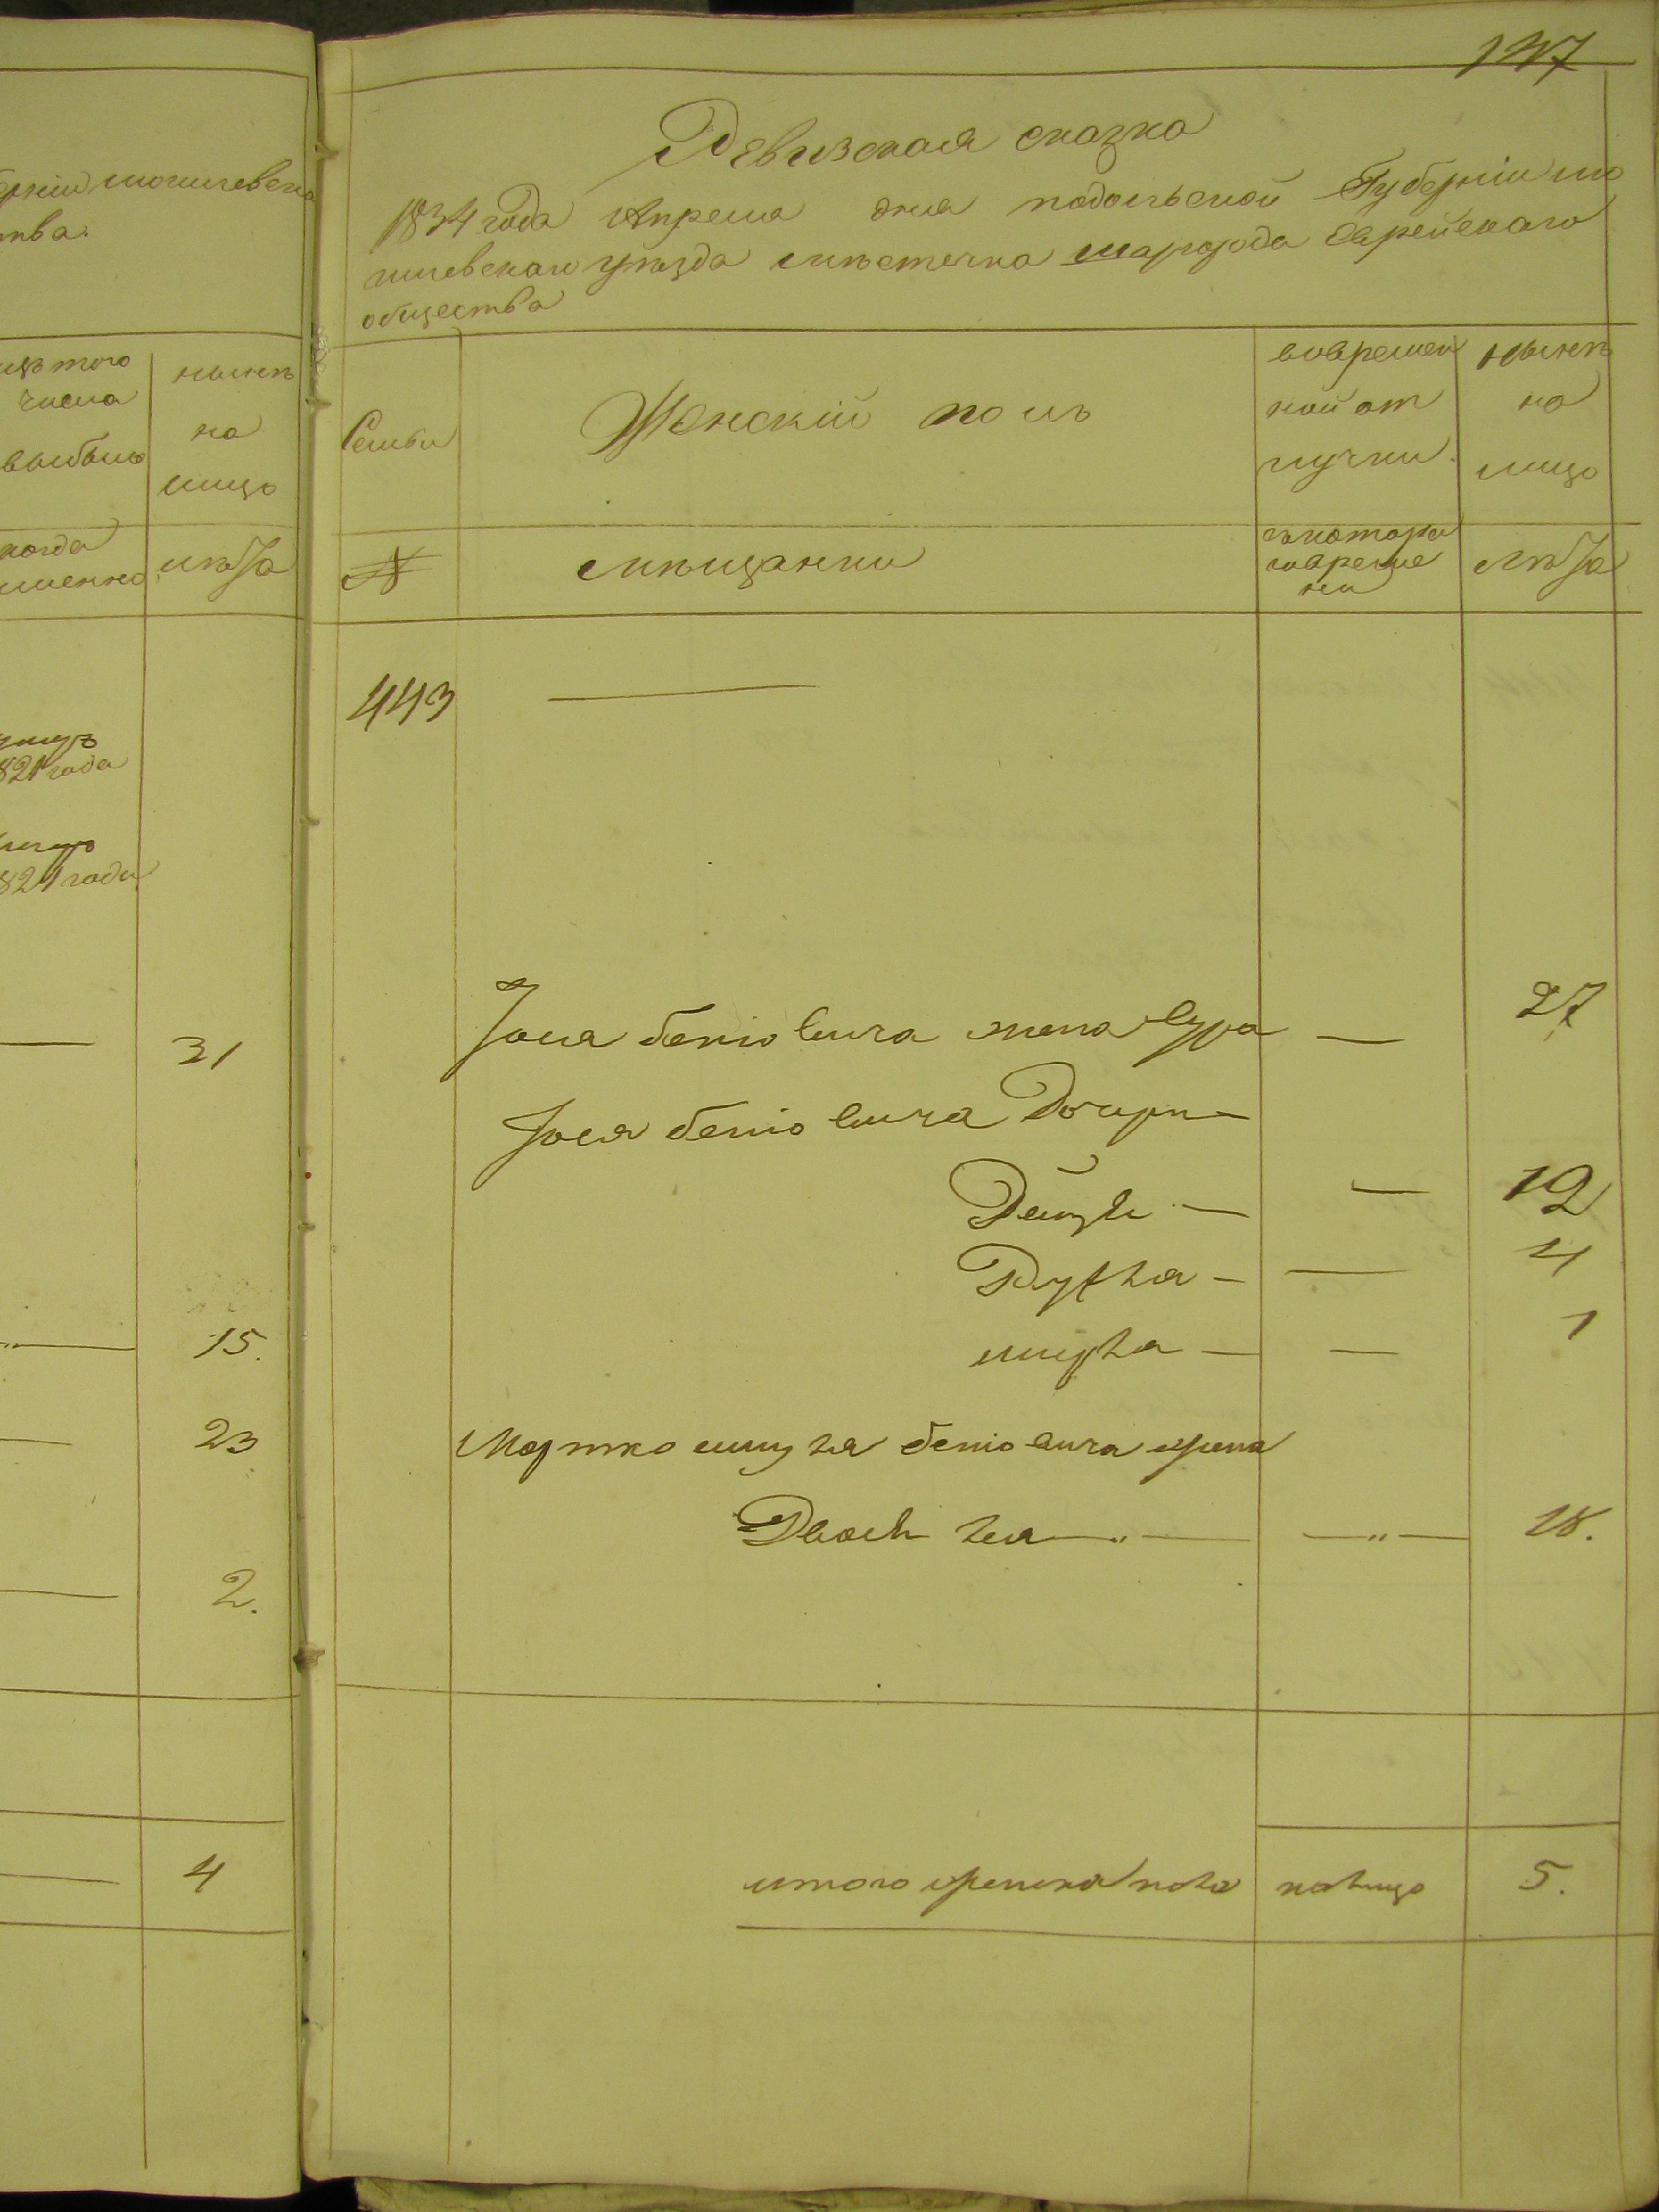 мнова.
ства.
изъ того
числа
выбыло
нынѣ
на
лицо
когда
именно
лѣта
1821 года
1821 года
31
15.
23
2.
4
137
Ревизская сказка
1834 года Апреля дня подольской Губерніи мо
гилевского уѣзда мѣстечка шаргорода Еврейскаго
общества
Семьи
Женскій полъ
вовремен
ной от
лучки.
нынѣ
на
лицо
№
мѣщанки
съ котора
го време
ни
лѣта
443
Іося беніовича жена сура — 27
Іося беніовича Дочери —
Дейзя — — 12
Рухля — — 4
— — 1
Мортко беніовича жена
Двося —„— —„— 18.
итого женска пола налицо 5.